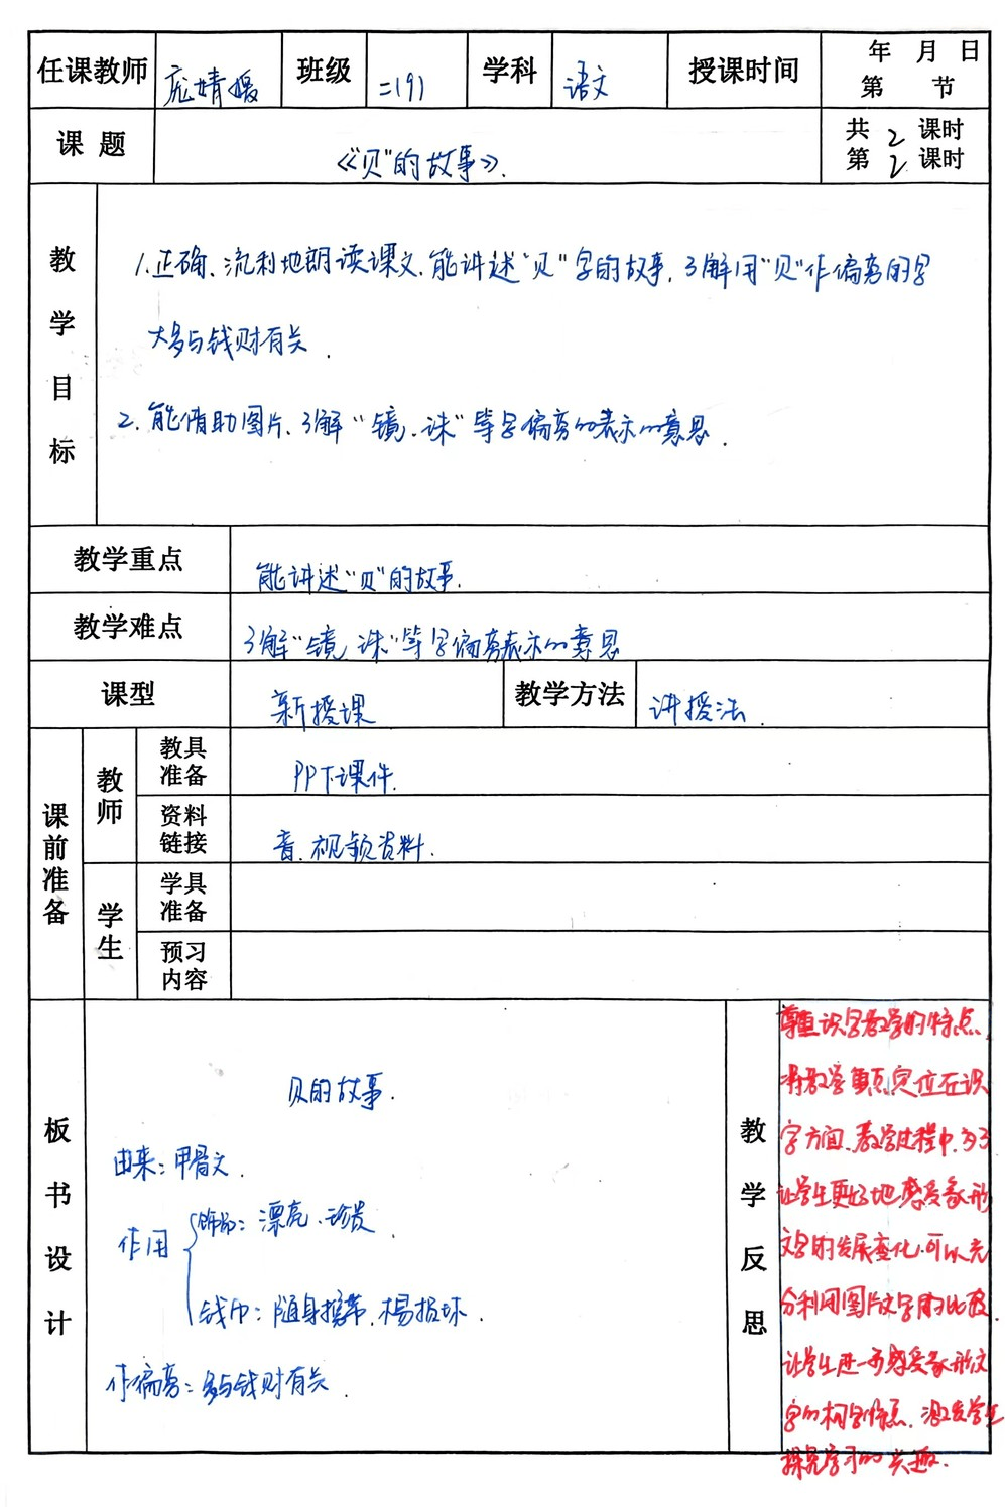 任课教师 庞婧媛 班级 二(9) 学科 语文 授课时间 年 月 日
第 节
课 题 《“贝”的故事》. 共 2 课时
第 2 课时
教学目标
1.正确、流利地朗读课文.能讲述“贝”字的故事.了解用“贝”作偏旁的字
大多与钱财有关.
2.能借助图片、了解“镜、珠”等字偏旁的表示的意思.
教学重点 能讲述“贝”的故事.
教学难点 了解“镜、珠”等字偏旁表示的意思
课型 新授课 教学方法 讲授法.
课前准备
教师
教具准备 PPT课件.
资料链接 音.视频资料.
学生
学具准备
预习内容
板书设计
贝的故事.
由来:甲骨文.
作用
饰品:漂亮、珍贵
钱币:随身携带.不易损坏.
作偏旁:多与钱财有关.
教学反思
尊重识字教学的特点,
将教学重点定位在识
字方面.教学过程中.为了
让学生更好地感受象形
文字的发展变化.可以充
分利用图片文字的比较.
让学生进一步感受象形文
字的构字特点.激发学生
探究学习的兴趣.